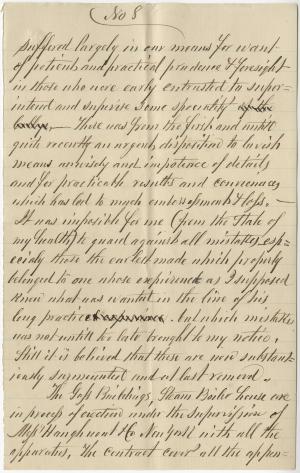 No 8
suffered largely in our means for want
of patient and practical prudence & foresight
in those who were early entrusted to super-
intend and supervise some specialty
There was from the first and until
quite recently an urgent disposition to lavish
means unwisely and impatience of details
and for practicable results and conveniences
which has led to much embarrassment & loss. —
It was impossible for me (from the state of
my health) to guard against all mistakes, esp-
ecialy those the earliest made which properly
belonged to one whose experience as I supposed
knew what was wanted in the line of his
long practice but which mistakes
was not until too late brought to my notice.
Still it is believed that these are now substant-
iously surmounted and at last removed.
The Gass Buildings, Steam Boiler House are
in process of erection under the supervision of
Messr Haughwout & Co New York with all the
apparatus, the contract cover all the appen-